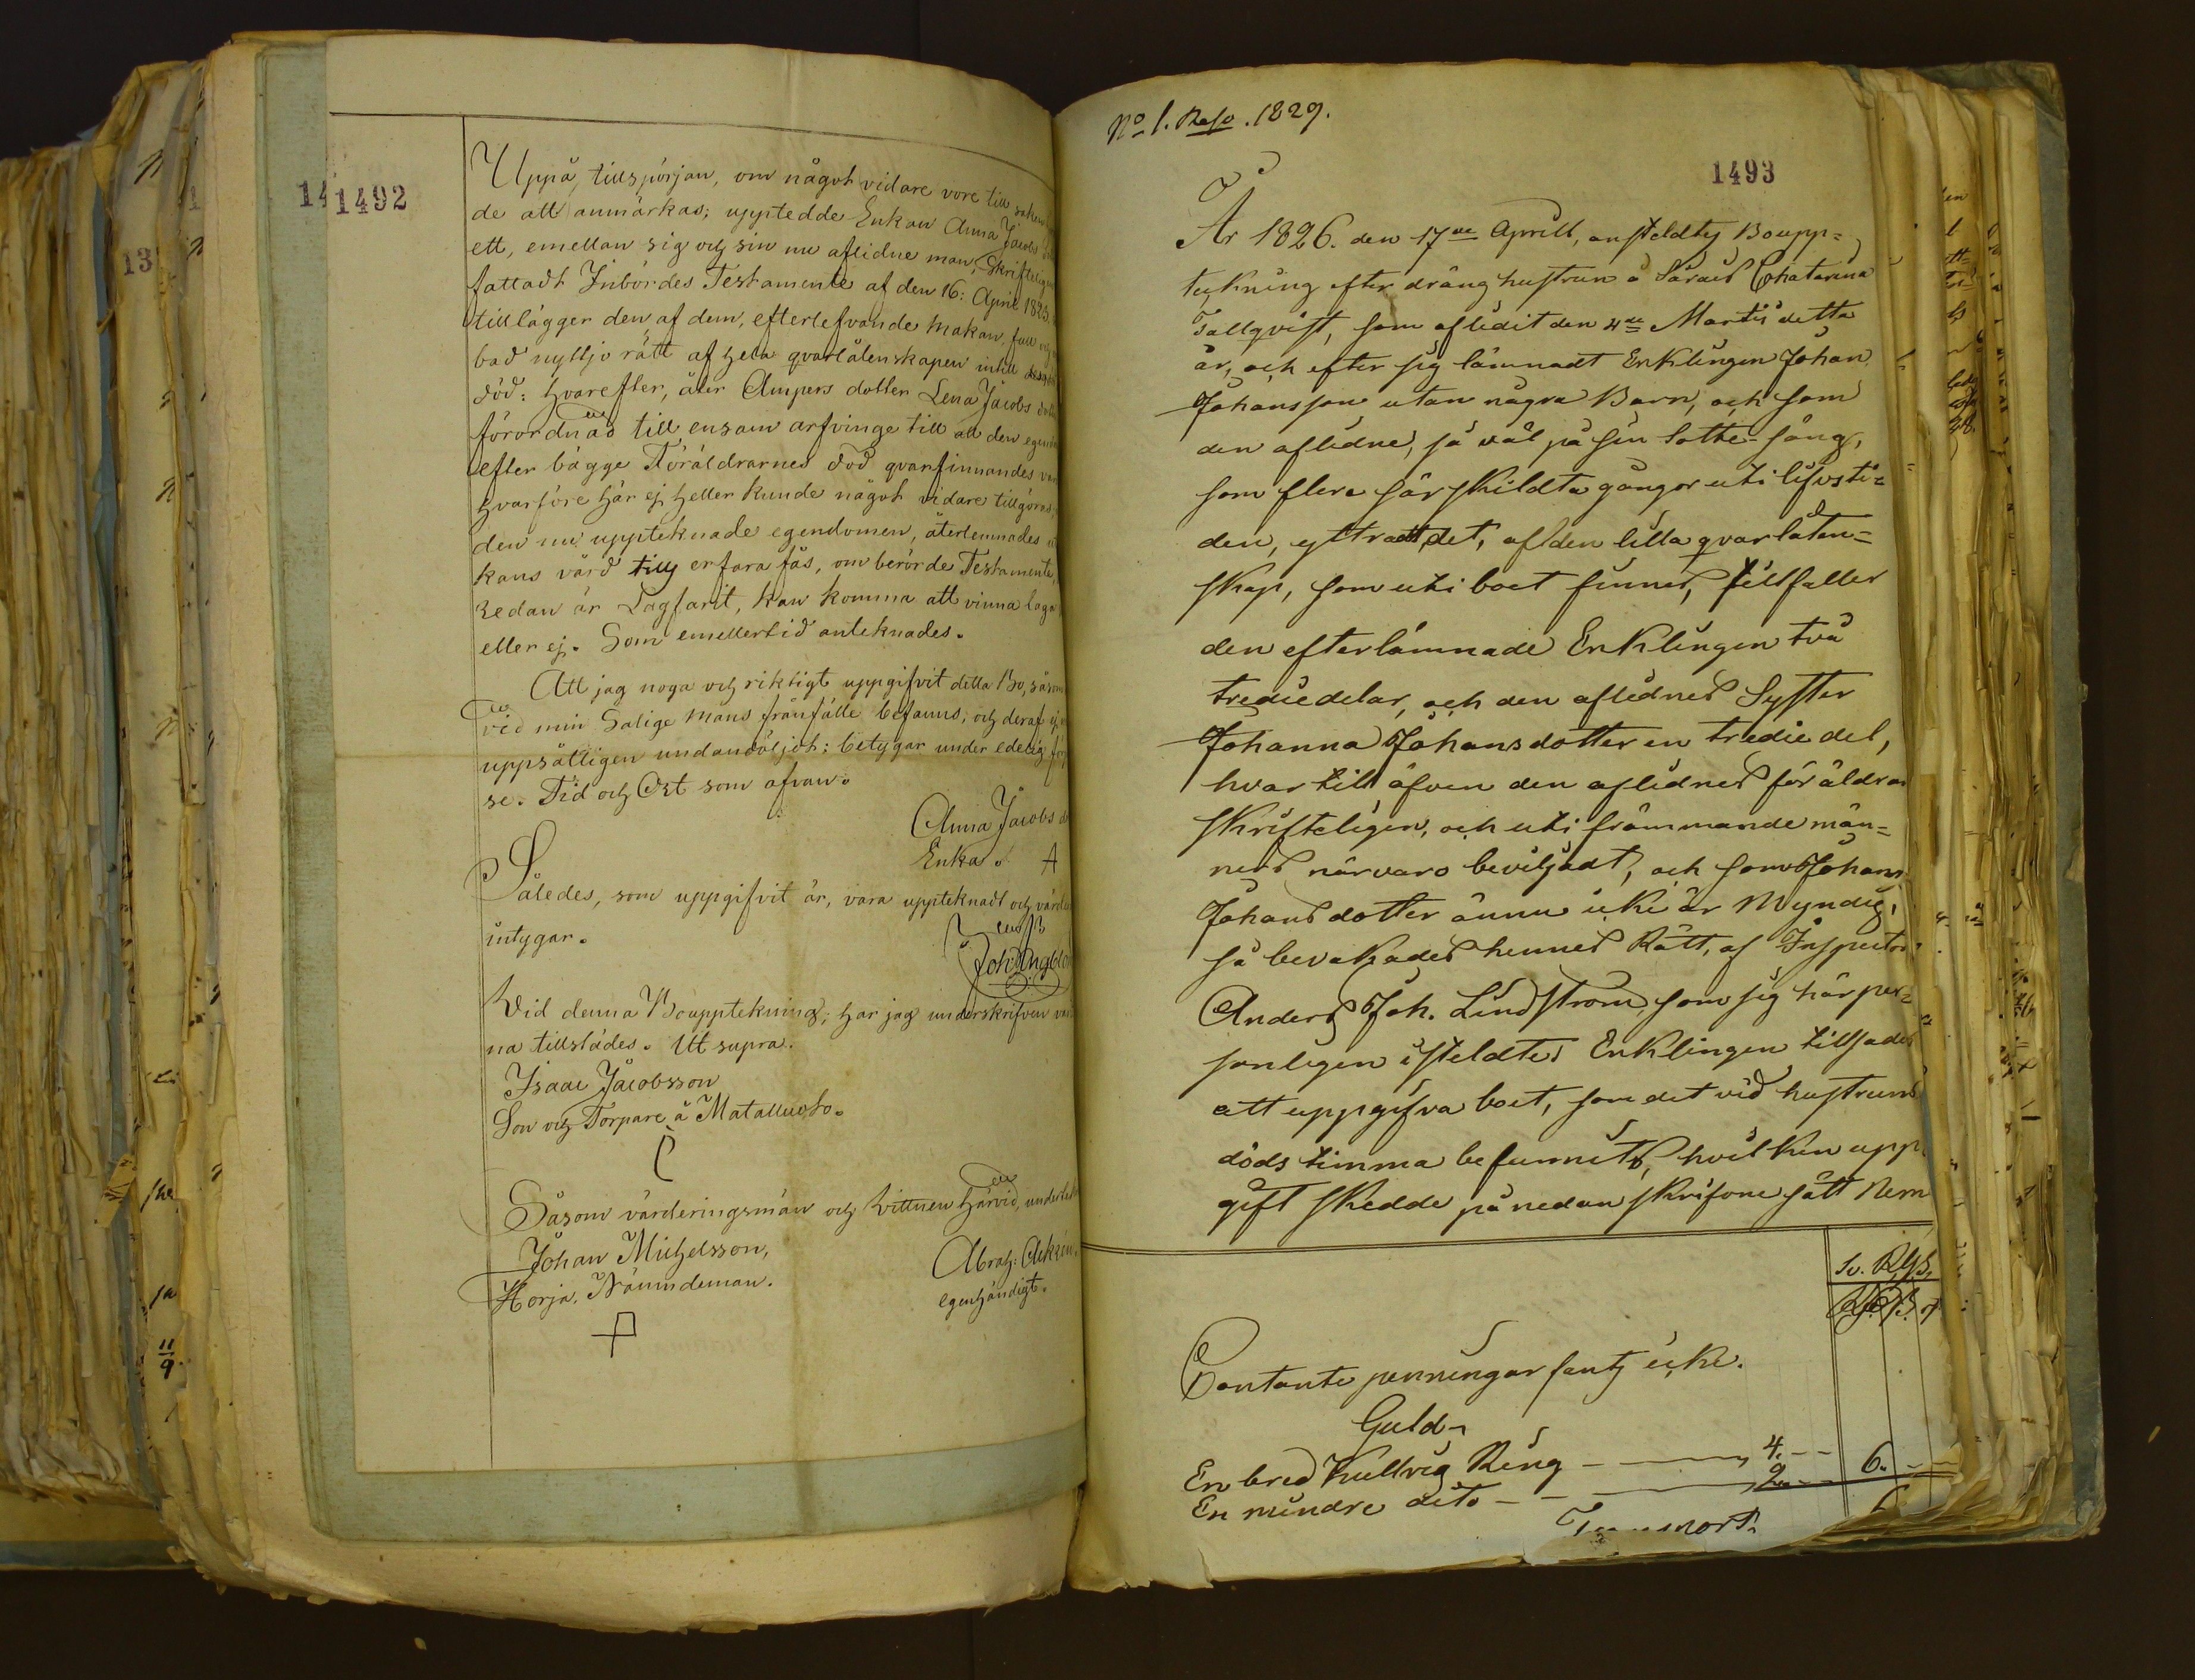 1492
Uppå tillspörjan, om något vidare vore till
de att anmärkas; upptedde Enkan Anna Jacobs
ett, emellan sig och sin nu aflidne man, Skrifteligen
fattadt Inbördes Testamente af den 16: April 1823.
tillägger den af dem, efterlefvande Makan, full och
bad nyttjo rätt af hela qvarlåtenskapen intill
död: hvarefter, åter Ampers dotter Lena Jacobs
förordnas till ensam arfvinge till all den
efter bägge Föräldrarnes död qvarfinnandes
hvarföre här ej heller kunde något vidare tillgöras
den nu uppteknade egendomen, återlemnades
kans vård tills erfara fås, om berörde Testamente,
redan är Lagfarit, kan komma att vinna laga
eller ej. Som emellertid anteknades.
Att jag noga och riktigt uppgifvit detta Bo, såsom
vid min Salige Mans frånfälle befanns, och deraf ej
uppsåtligen undandöljdt; betygar under edelig
se. Tid och Ort som ofvan.
Anna Jacobs
Enka. A
Således, som uppgifvit är, vara uppteknadt och
intygar.
Vid denna Bouppteckning, har jag underskrifven
na tillstädes. Ut supra.
Isaac Jacobsson
Son och Torpare å Matalluoto.
Såsom värderingsmän och Vittnen härvid,
Johan Michelsson, Abrah:
Horja. Nämndeman. egenhändigt.
No 1. Reso. 1829.
1493
År 1826. den 17de Aprill, ansteldtes Boupp=
tekning efter dräng hustrun å Särais Chatarina
Tallqvist, som aflidit den 4de Martii detta
år, och efter sig lämnadt Enklingen Johan
Johansson utan några Barn, och som
den aflidne, så väl på sin Sotte-säng,
som flera särskildta gångor uti lifsti=
den, yttradt det, af den lilla qvarlåten=
skap, som uti boet finnes, tillfaller
den efterlämnade Enklingen två
trediedelar, och den aflidnes Syster
Johanna Johansdotter en tredie del,
hvar till äfven den aflidnes föräldrar
skrifteligen, och uti främmande män=
ners närvaro beviljadt, och som Johana
Johansdotter ännu icke är Myndig,
så bevakades hennes Rätt, af Inspector
Anders Joh. Lindström, som sig här per=
sonligen isteldte. Enklingen tillsades
att uppgifva boet, som det vid hustruns
döds timma befunnits, hvilken upp
gift skedde på nedanskrifvne sätt Nem
Contante penningar fants icke.
Guld
En bred kullrig Ring 4. 
En mindre dito 2. 6.
Transport. 6